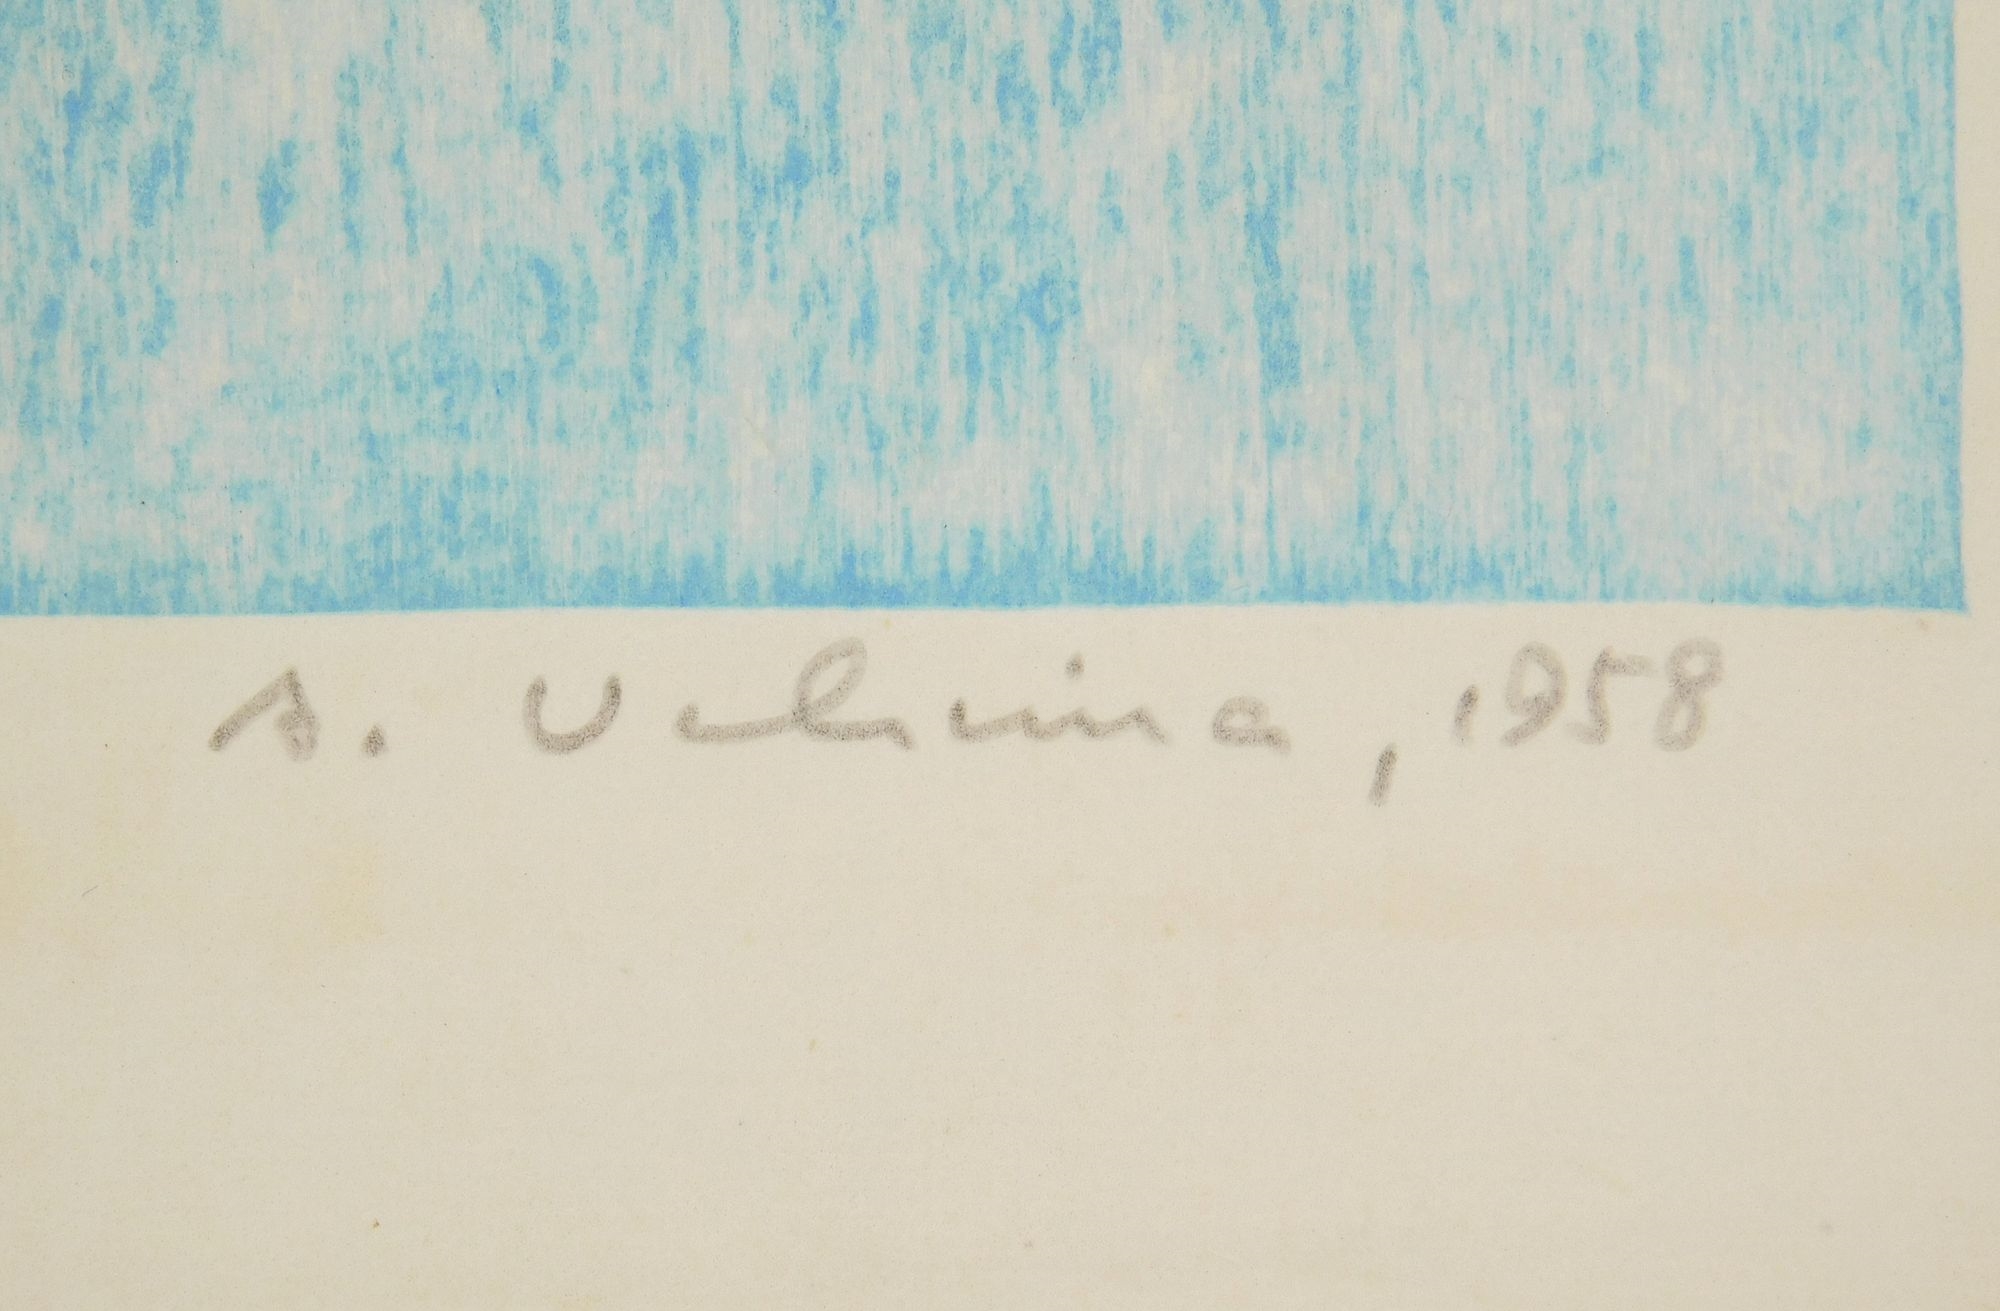 s. Uchima, 1958